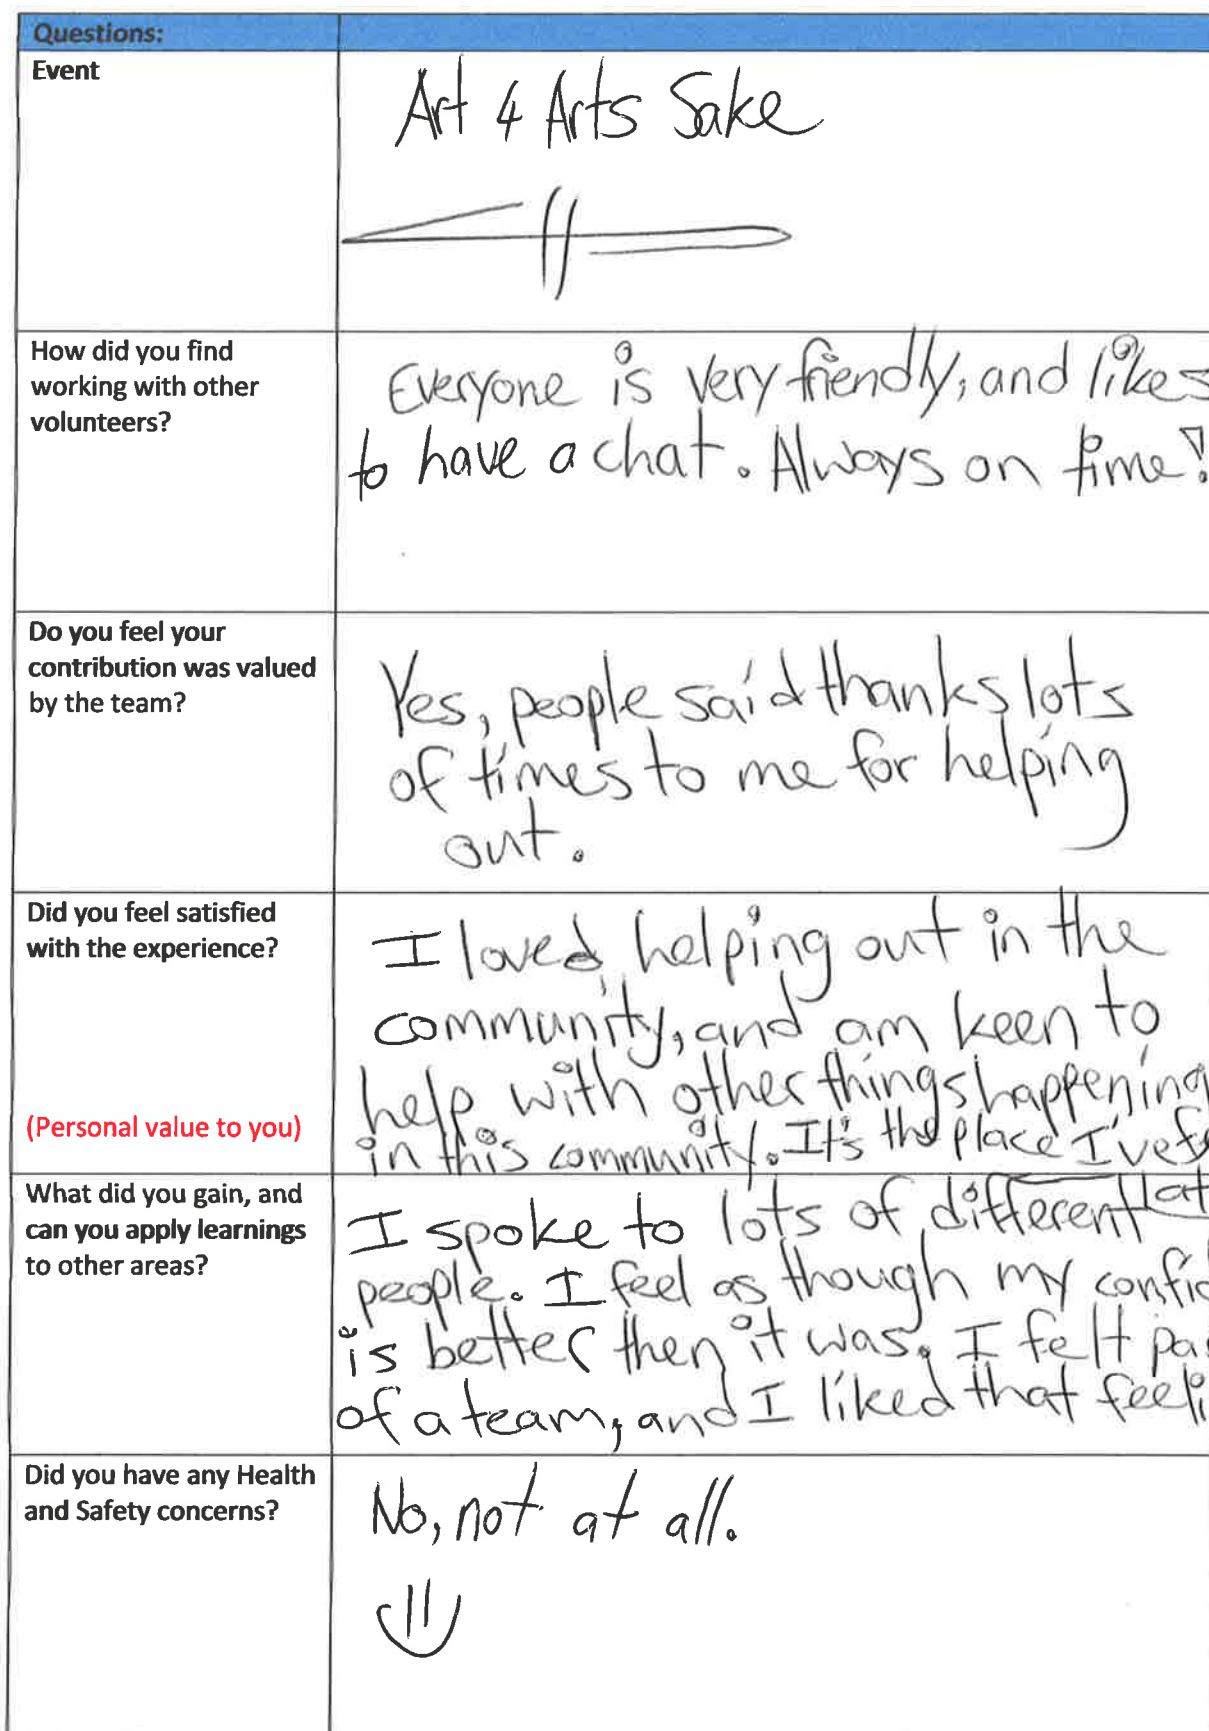 Questions:
Event
Art 4 Arts Sake
How did you find
working with other
volunteers?
Everyone is very friendly, and likes
to have a chat. Always on time!
Do you feel your
contribution was valued
by the team?
Yes, people said thanks lots
of times to me for helping
out.
Did you feel satisfied
with the experience?
(Personal value to you)
I loved helping out in the
community, and am keen to
help with other things happening
in this community. It's the place I've
What did you gain, and
can you apply learnings
to other areas?
I spoke to lots of different
people. I feel as though my
is better then it was. I felt
of a team, and I liked that
Did you have any Health
and Safety concerns?
No, not at all.